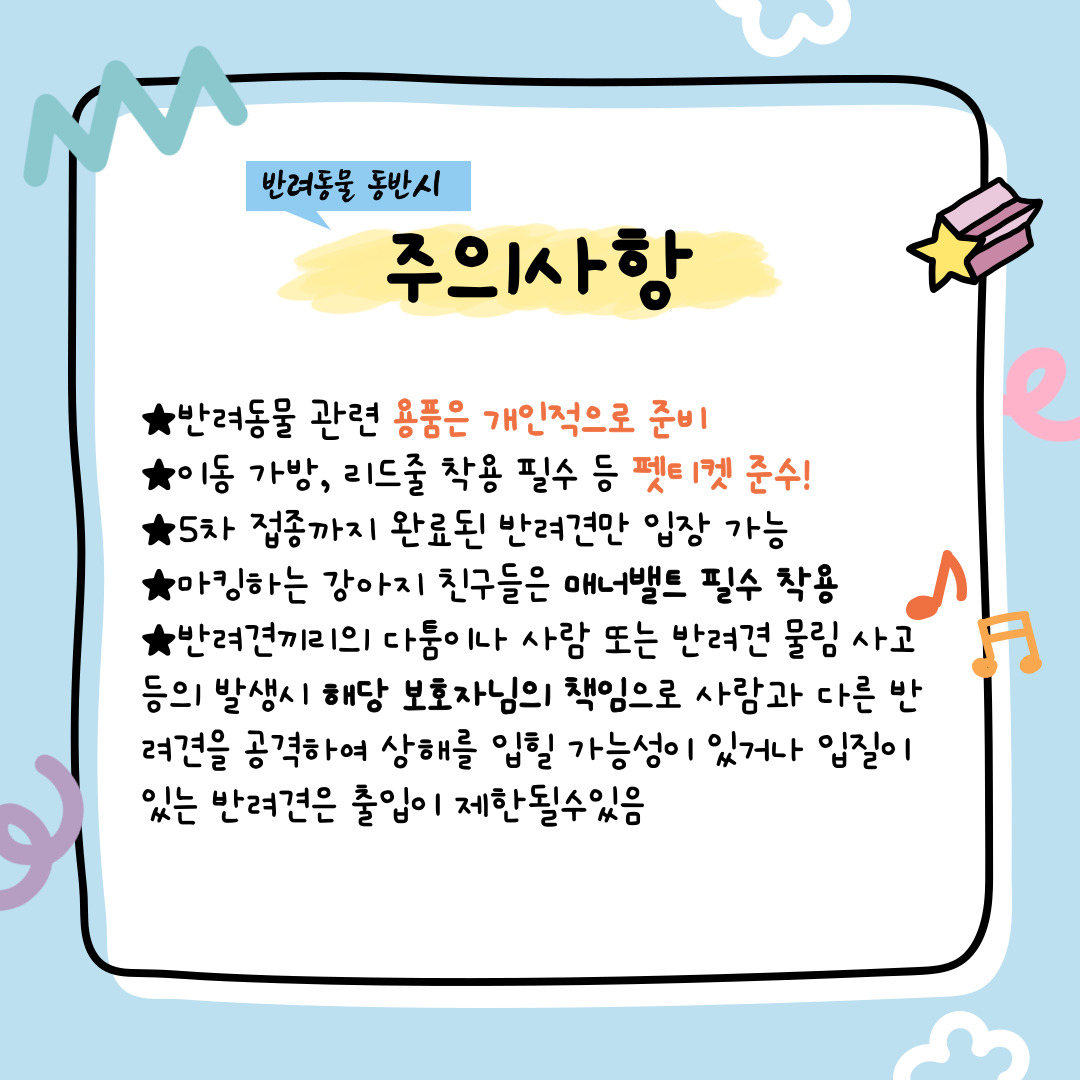 반려동물 동반시
주의사항
★반려동물 관련 용품은 개인적으로 준비
★이동 가방, 리드줄 착용 필수 등 펫티켓 준수!
★5차 접종까지 완료된 반려견만 입장 가능
★마킹하는 강아지 친구들은 매너밸트 필수 착용
★반려견끼리의 다툼이나 사람 또는 반려견 물림 사고
등의 발생시 해당 보호자님의 책임으로 사람과 다른 반
려견을 공격하여 상해를 입힐 가능성이 있거나 입질이
있는 반려견은 출입이 제한될수있음